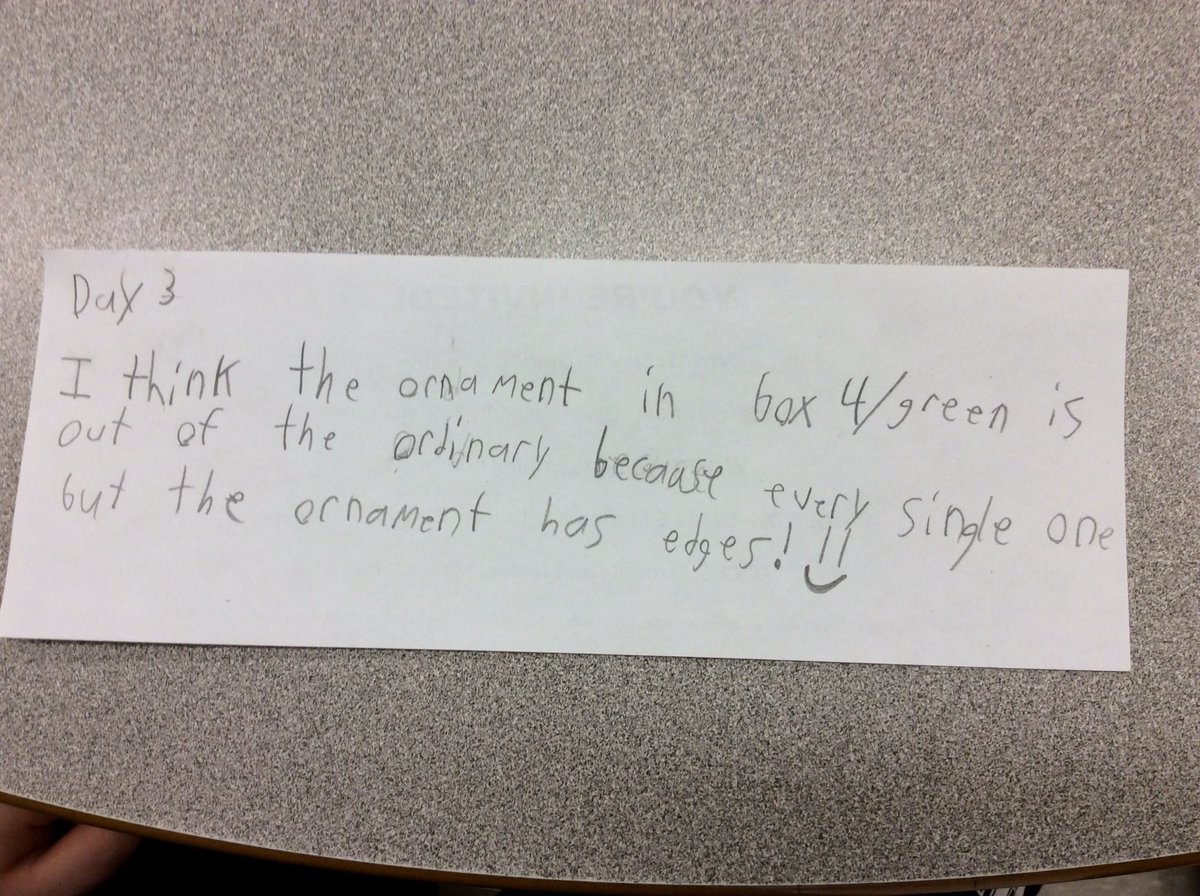 Day 3
I think the ornament in box 4/green is
out of the ordinary because every single one
but the ornament has edges!